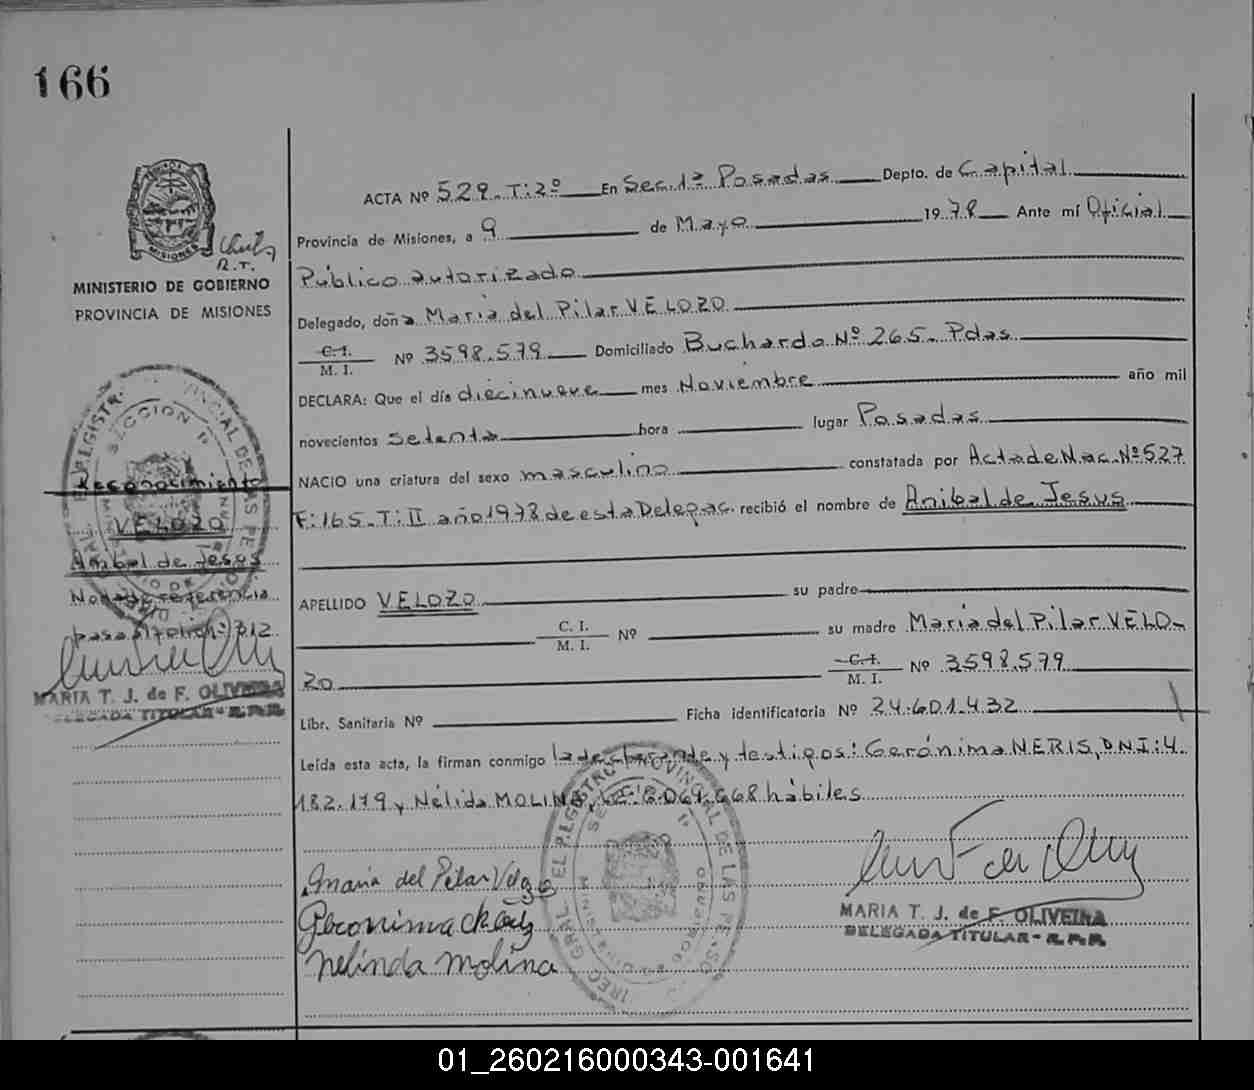 166
ACTA Nº 529. T: 2º En Sec. 1ª Posadas Depto. de Capital
Provincia de Misiones, a 9 de Mayo 1978 Ante mí Oficial
Público autorizado
R.T.
MINISTERIO DE GOBIERNO
PROVINCIA DE MISIONES
Delegado, doña Maria del Pilar VELOZO
C. I.
M. I. Nº 3598.579 Domiciliado Buchardo Nº 265. Pdas
DECLARA: Que el día diecinueve mes Noviembre año mil
novecientos setenta hora lugar Posadas
NACIO una criatura del sexo masculino constatada por Acta de Nac. Nº 527
F: 165. T: II año 1978 de esta Delegac. recibió el nombre de Anibal de Jesus
APELLIDO VELOZO su padre
C. I.
M. I. Nº su madre Maria del Pilar VELO-
ZO C. I.
M. I. Nº 3598.579
Libr. Sanitaria Nº Ficha identificatoria Nº 24.601.432
Leída esta acta, la firman conmigo la declarante y testigos: Gerónima NERIS, DNI: 4.
182.179 y Nélida MOLINA, LC: 6.069.668 hábiles
Reconocimiento
VELOZO
Anibal de Jesus
Nota de referencia
pasa al folio: 312
MARIA T. J. de F. OLIVEIRA
DELEGADA TITULAR - R.P.P.
Maria del Pilar Velozo
Geronima
Nelinda Molina
MARIA T. J. de F. OLIVEIRA
DELEGADA TITULAR - R.P.P.
01_260216000343-001641